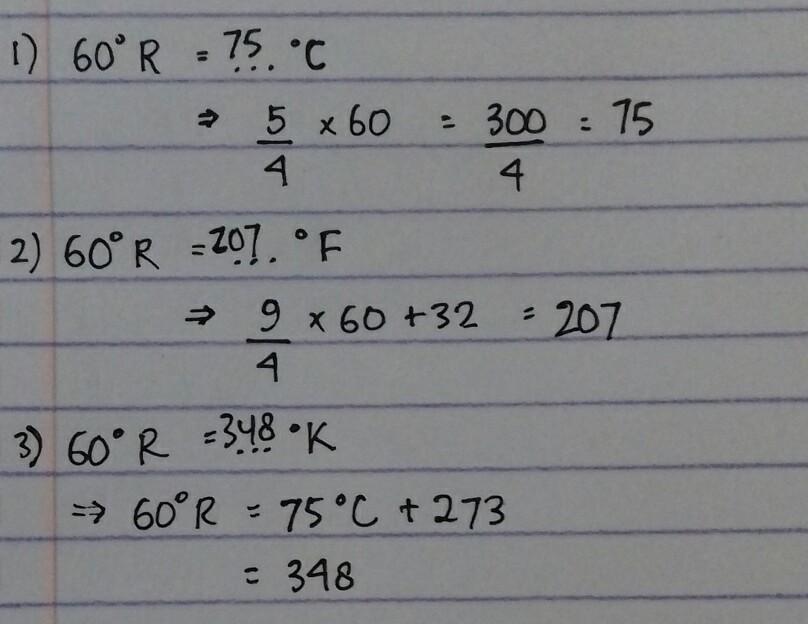 1) 60° R = 75... °C
⇒ 5/4 × 60 = 300/4 = 75
2) 60° R = 207... °F
⇒ 9/4 × 60 + 32 = 207
3) 60° R = 348... °K
⇒ 60°R = 75°C + 273
= 348